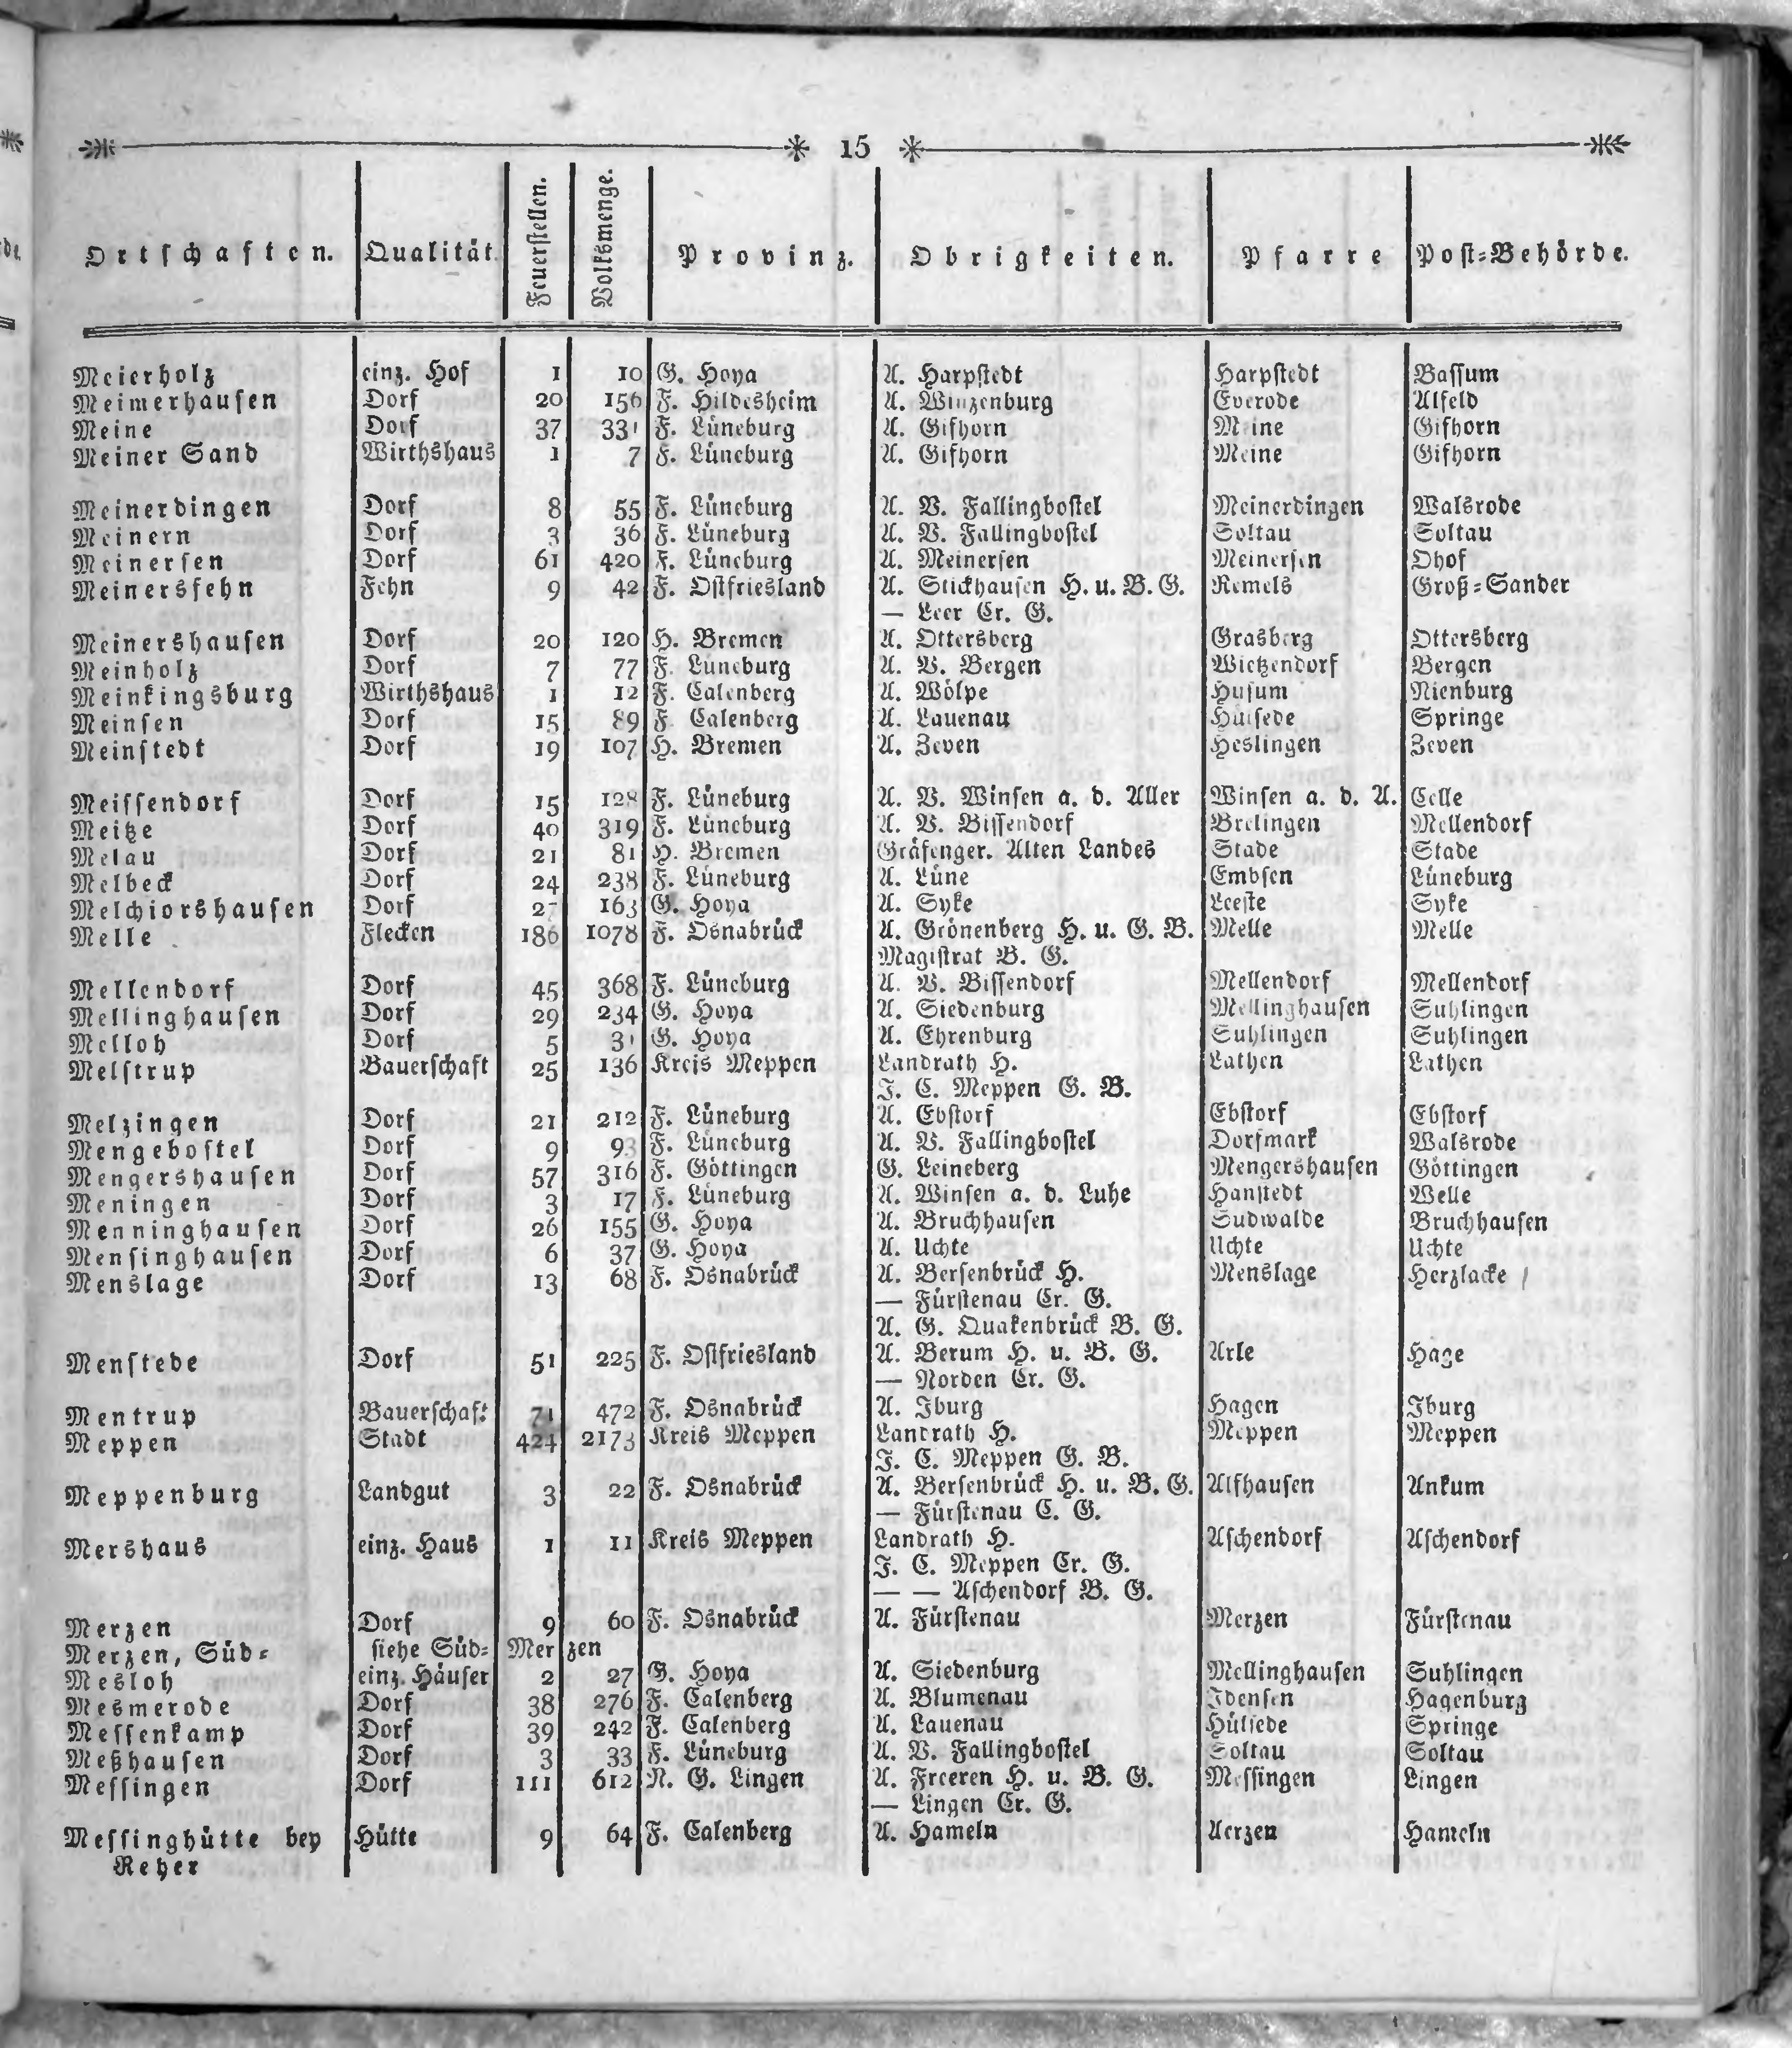 15
Ortschaften. Qualität. Feuerstellen. Volksmenge. Provinz. Obrigkeiten. Pfarre Post-Behörde.
Meierholz einz. Hof 1 10 G. Hoya A. Harpstedt Harpstedt Bassum
Meimerhausen Dorf 20 156 F. Hildesheim A. Winzenburg Everode Alfeld
Meine Dorf 37 331 F. Lüneburg A. Gifhorn Meine Gifhorn
Meiner Sand Wirthshaus 1 7 F. Lüneburg A. Gifhorn Meine Gifhorn
Meinerdingen Dorf 8 55 F. Lüneburg A. V. Fallingbostel Meinerdingen Walsrode
Meinern Dorf 3 36 F. Lüneburg A. V. Fallingbostel Soltau Soltau
Meinersen Dorf 61 420 F. Lüneburg A. Meinersen Meinersen Ohof
Meinersfehn Fehn 9 42 F. Ostfriesland A. Stickhausen H. u. B. G. Remels Groß-Sander
— Leer Cr. G.
Meinershausen Dorf 20 120 H. Bremen A. Ottersberg Grasberg Ottersberg
Meinholz Dorf 7 77 F. Lüneburg A. V. Bergen Wietzendorf Bergen
Meinkingsburg Wirthshaus 1 12 F. Calenberg A. Wölpe Husum Nienburg
Meinsen Dorf 15 89 F. Calenberg A. Lauenau Hülsede Springe
Meinstedt Dorf 19 107 H. Bremen A. Zeven Heslingen Zeven
Meissendorf Dorf 15 128 F. Lüneburg A. V. Winsen a. d. Aller Winsen a. d. A. Celle
Meitze Dorf 40 319 F. Lüneburg A. V. Bissendorf Brelingen Mellendorf
Melau Dorf 21 81 H. Bremen Gräfenger. Alten Landes Stade Stade
Melbeck Dorf 24 238 F. Lüneburg A. Lüne Embsen Lüneburg
Melchiorshausen Dorf 163 G. Hoya A. Syke Leeste Syke
Melle Flecken 186 1078 F. Osnabrück A. Grönenberg H. u. G. B. Melle Melle
Magistrat B. G.
Mellendorf Dorf 45 368 F. Lüneburg A. V. Bissendorf Mellendorf Mellendorf
Mellinghausen Dorf 29 234 G. Hoya A. Siedenburg Mellinghausen Suhlingen
Melloh Dorf 5 31 G. Hoya A. Ehrenburg Suhlingen Suhlingen
Melstrup Bauerschaft 25 136 Kreis Meppen Landrath H. Lathen Lathen
J. C. Meppen G. B.
Melzingen Dorf 21 212 F. Lüneburg A. Ebstorf Ebstorf Ebstorf
Mengebostel Dorf 9 93 F. Lüneburg A. V. Fallingbostel Dorfmark Walsrode
Mengershausen Dorf 57 316 F. Göttingen G. Leineberg Mengershausen Göttingen
Meningen Dorf 3 17 F. Lüneburg A. Winsen a. d. Luhe Hanstedt Welle
Menninghausen Dorf 26 155 G. Hoya A. Bruchhausen Sudwalde Bruchhausen
Mensinghausen Dorf 6 37 G. Hoya A. Uchte Uchte Uchte
Menslage Dorf 13 68 F. Osnabrück A. Bersenbrück H. Menslage Herzlacke
— Fürstenau Cr. G.
A. G. Quakenbrück B. G.
Menstede Dorf 51 225 F. Ostfriesland A. Berum H. u. B. G. Arle Hage
— Norden Cr. G.
Mentrup Bauerschaft 71 472 F. Osnabrück A. Iburg Hagen Iburg
Meppen Stadt 424 2173 Kreis Meppen Landrath H. Meppen Meppen
J. C. Meppen G. B.
Meppenburg Landgut 3 22 F. Osnabrück A. Bersenbrück H. u. B. G. Alfhausen Ankum
— Fürstenau C. G.
Mershaus einz. Haus 1 11 Kreis Meppen Landrath H. Aschendorf Aschendorf
J. C. Meppen Cr. G.
— — Aschendorf B. G.
Merzen Dorf 9 60 F. Osnabrück A. Fürstenau Merzen Fürstenau
Merzen, Süd- siehe Süd-Merzen
Mesloh einz. Häuser 2 27 G. Hoya A. Siedenburg Mellinghausen Suhlingen
Mesmerode Dorf 38 276 F. Calenberg A. Blumenau Idensen Hagenburg
Messenkamp Dorf 39 242 F. Calenberg A. Lauenau Hülsede Springe
Meßhausen Dorf 3 33 F. Lüneburg A. V. Fallingbostel Soltau Soltau
Messingen Dorf 111 612 N. G. Lingen A. Freeren H. u. B. G. Messingen Lingen
— Lingen Cr. G.
Messinghütte bey Hütte 9 64 F. Calenberg A. Hameln Aerzen Hameln
Reher